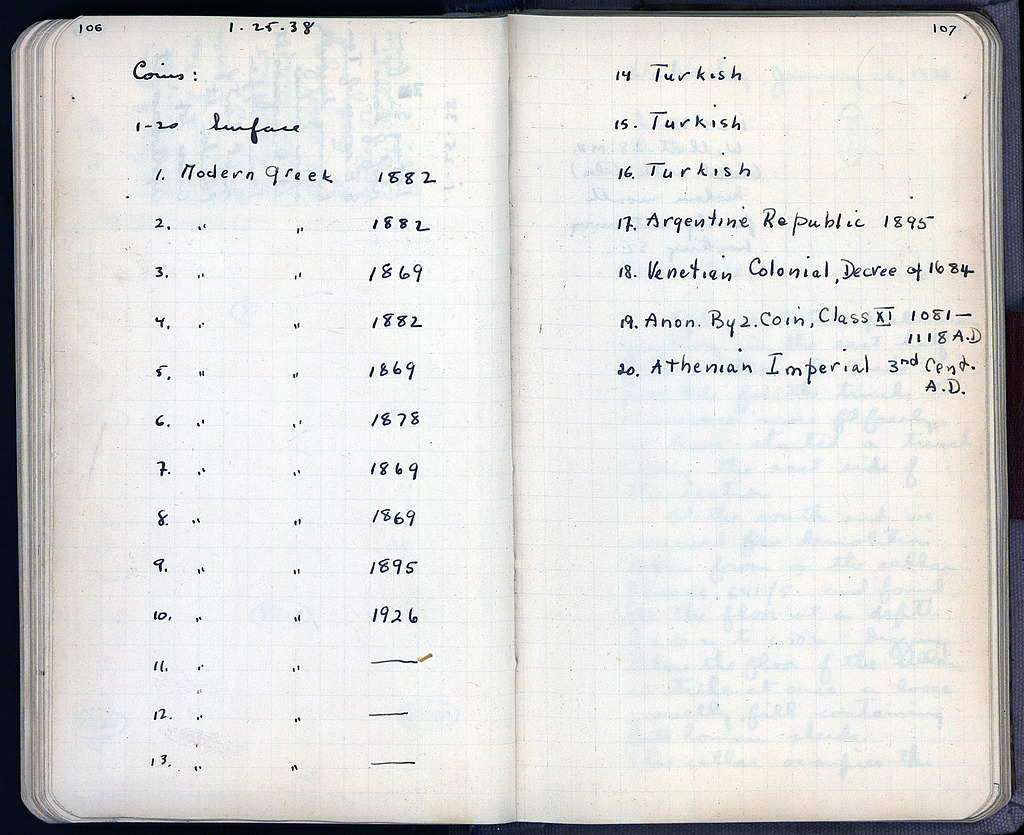 106
1.25.38
Coins:
1-20 Surface
1. Modern Greek 1882
2. " " 1882
3. " " 1869
4. " " 1882
5. " " 1869
6. " " 1878
7. " " 1869
8. " " 1869
9. " " 1895
10. " " 1926
11. " " —
12. " " —
13. " " —
107
14 Turkish
15. Turkish
16. Turkish
17. Argentine Republic 1895
18. Venetian Colonial, Decree of 1684
19. Anon. Byz. Coin, Class XI 1081–
1118 A.D
20. Athenian Imperial 3rd Cent.
A.D.